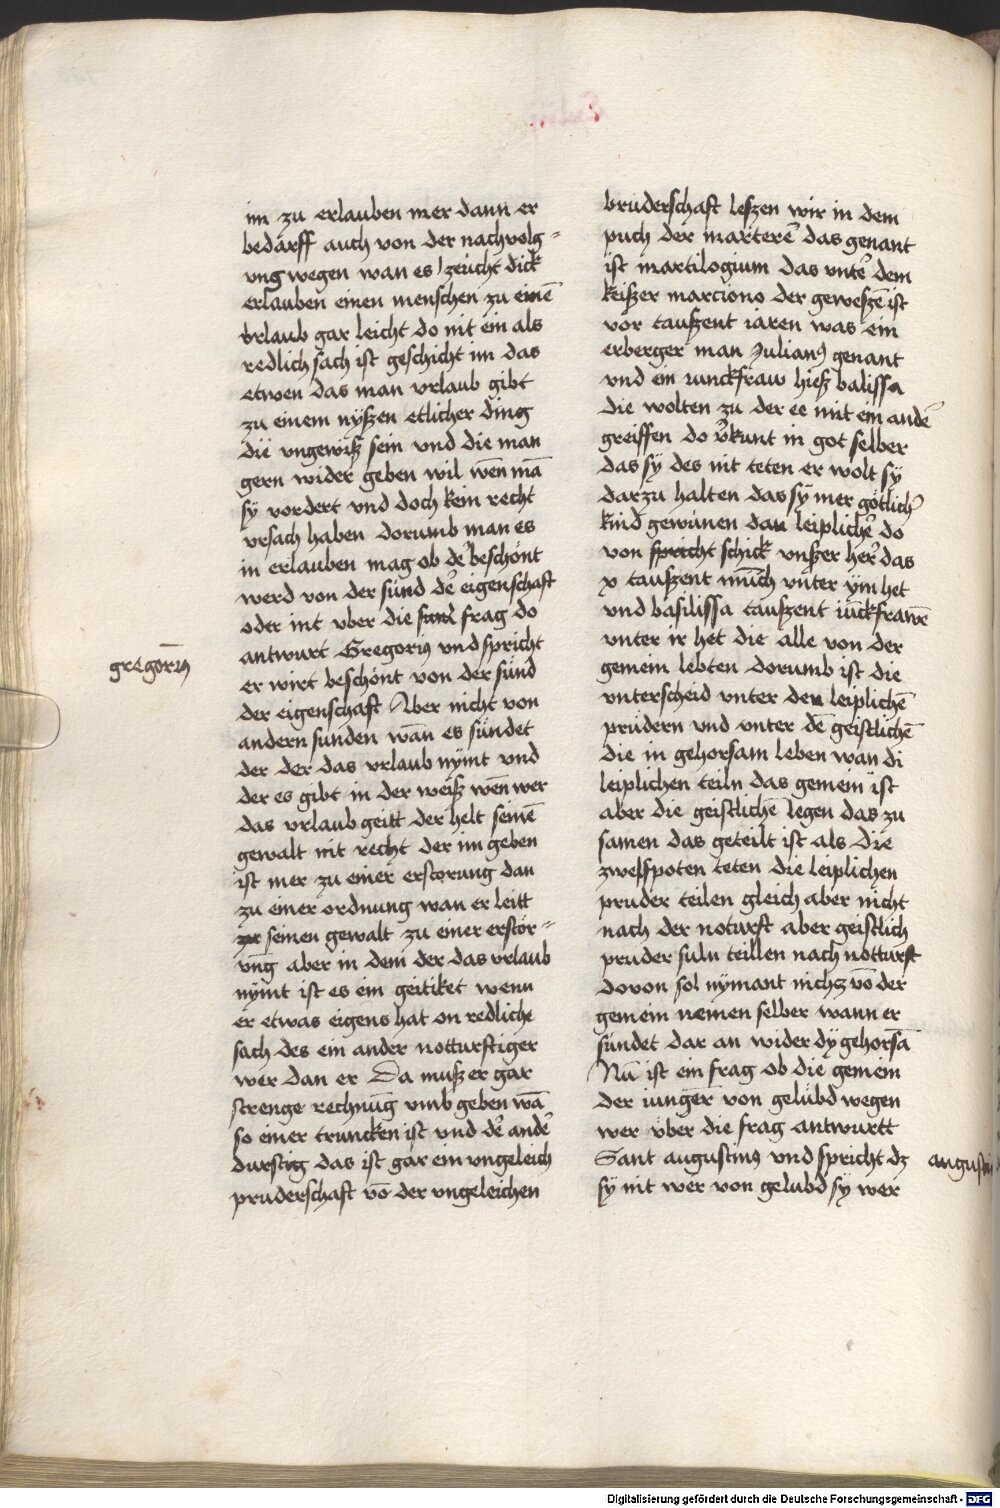 im zu erlauben mer dann er
bedarff auch von der nachvolg=
ung wegen wan es zeucht dick
erlauben einen menschen zu einē
vrlaub gar leicht do nit ein als
redlich sach ist geschicht im das
etwen das man vrlaub gibt
zu einem nyßen etlicher ding
dii ungewiß sein vnd die man
gern wider geben wil wen mā
sy vordert vnd doch kein recht
vrsach haben dorumb man es
in erlauben mag ob de beschönt
werd von der sünd de eigenschaft
oder nit vber die frag do
antwurt Gregoriꝰ vnd spricht
er wirt beschönt von der sünd
der eigenschaft Aber nicht von
andern sunden wān es sündet
der der das vrlaub nymt vnd
der es gibt in der weiß wen wer
das vrlaub geitt der helt seinē
gewalt nit recht der im geben
ist mer zu einer erstorung dan
zu einer ordnung wan er leitt
seinen gewalt zu einer erstör=
vng aber in dem der das vrlaub
nymt ist es ein geitiket wenn
er etwas eigens hat on redliche
sach des ein ander notturftiger
wer dan er Da muß er gar
strenge rechnūg vmb geben wā
so einer truncken ist vnd de ande
durstig das ist gar ein vngeleich
pruderschaft vō der vngeleichen
gregoriꝰ
bruderschaft leßen wir in dem
puch der martere das genant
ist martilogium das vnte dem
keißer marciono der geweßē ist
vor taußent iaren was ein
erberger man Julianꝰ genant
vnd ein iunckfraw hieß balissa
die wolten zu der ee mit ein ande
greiffen do vkunt in got selber
das sy des nit teten er wolt sy
darzu halten das sy mer götlich
kind gewunen dan leipliche do
von spricht schick vnßer her das
x taußent münch vnter ym het
vnd basilissa taußent iūckfrawē
vnter ir het die alle von der
gemein lebten dorumb ist die
vnterscheid vnter den leiplichē
prüdern vnd vnter dē geistlichē
die in gehorsam leben wan di
leiplichen teiln das gemein ist
aber die geistlichē legen das zu
samen das geteilt ist als die
zwelfpoten teten die leiplichen
pruder teilen gleich aber nicht
nach der noturft aber geistlich
pruder suln teillen nach notturft
dovon sol nymant nichz vō der
gemein nemen selber wann er
sündet dar an wider dy gehorsā
Nū ist ein frag ob die gemein
der iungerr von gelübd wegen
wer vber die frag antwurtt
Sant augustinꝰ vnd spricht dz
sy nit wer von gelubd sy wer
Digitalisierung gefördert durch die Deutsche Forschungsgemeinschaft - DFG